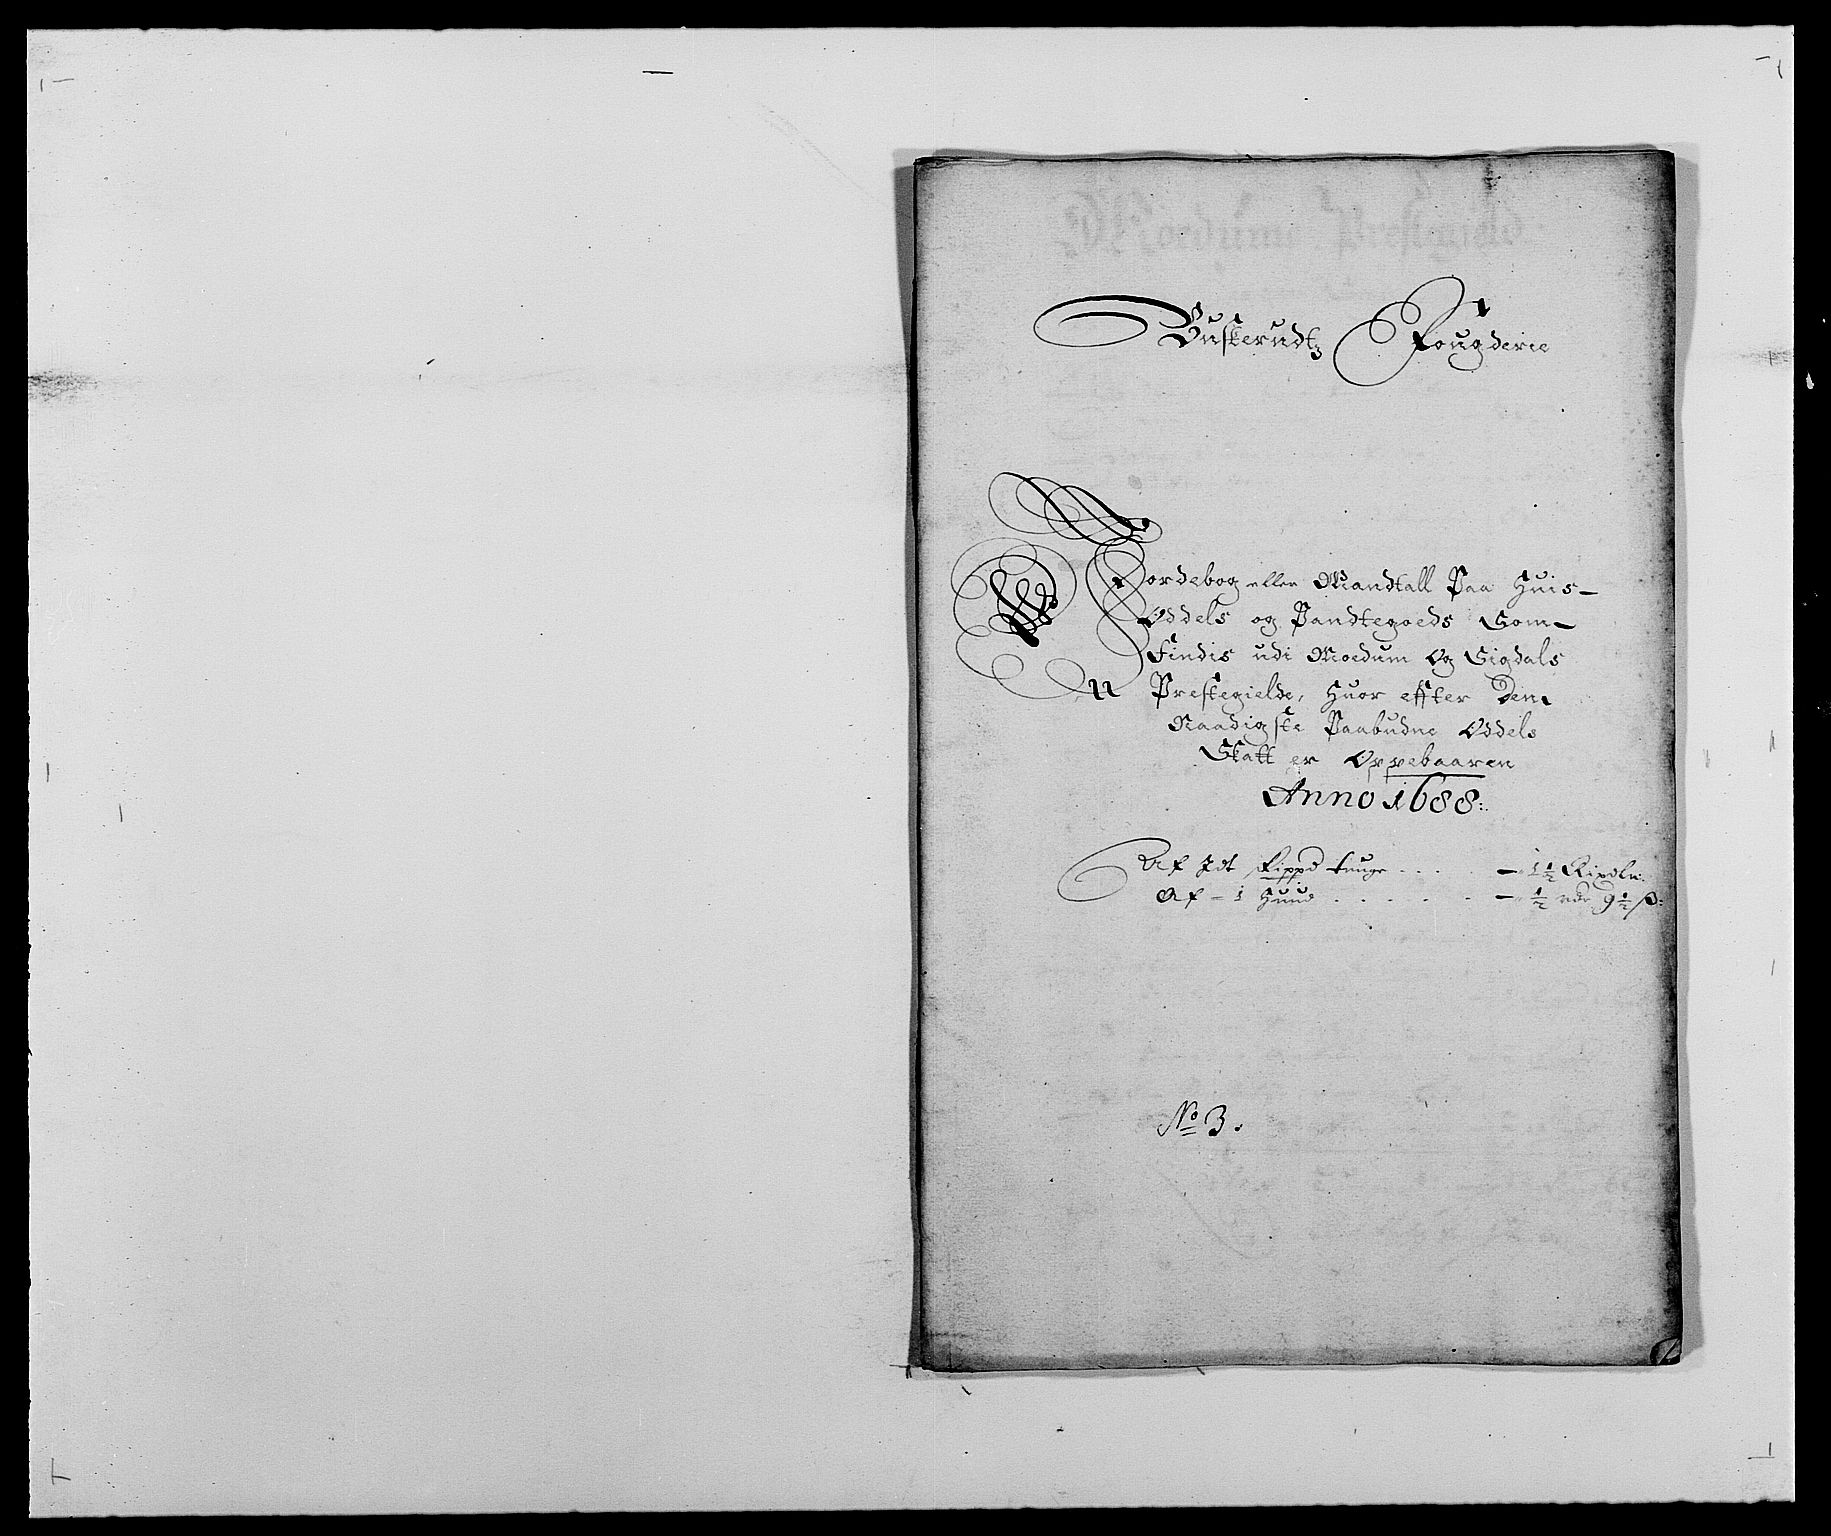 Buskerudtz Fougderie
En Jordebog eller Mandtall Paa Huis
Oddels og Pandtegoeds Som
Findis udi Moedum Og Sigdals
Prestegielde, Huor effter Den
Naadigste Paabudne Oddels
Skatt er Oppebaaren
Anno 1688:
Af Idt tunge - 1½
Af - 1 Huud - ½ 9½ ß:
No 3.